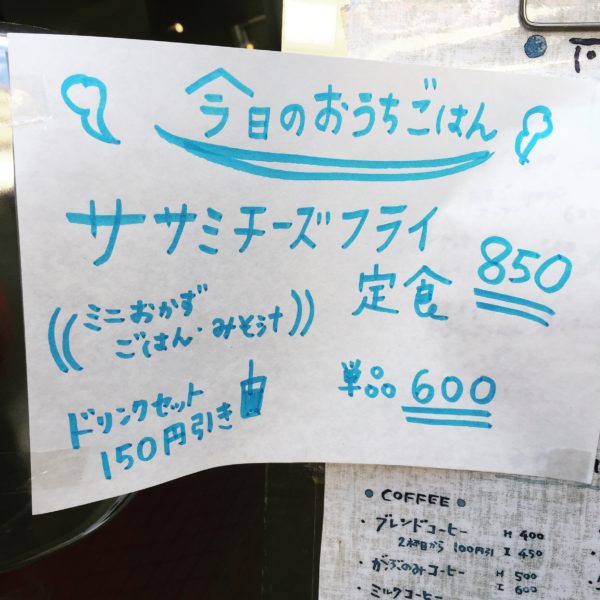 今日のおうちごはん
ササミチーズフライ
定食 850
ミニおかず
ごはん・みそ汁
単品 600
ドリンクセット
150円引き
COFFEE
・ブレンドコーヒー H 400
2杯目から 100円引 I 450
・がぶのみコーヒー H 500
I 600
・ミルクコーヒー